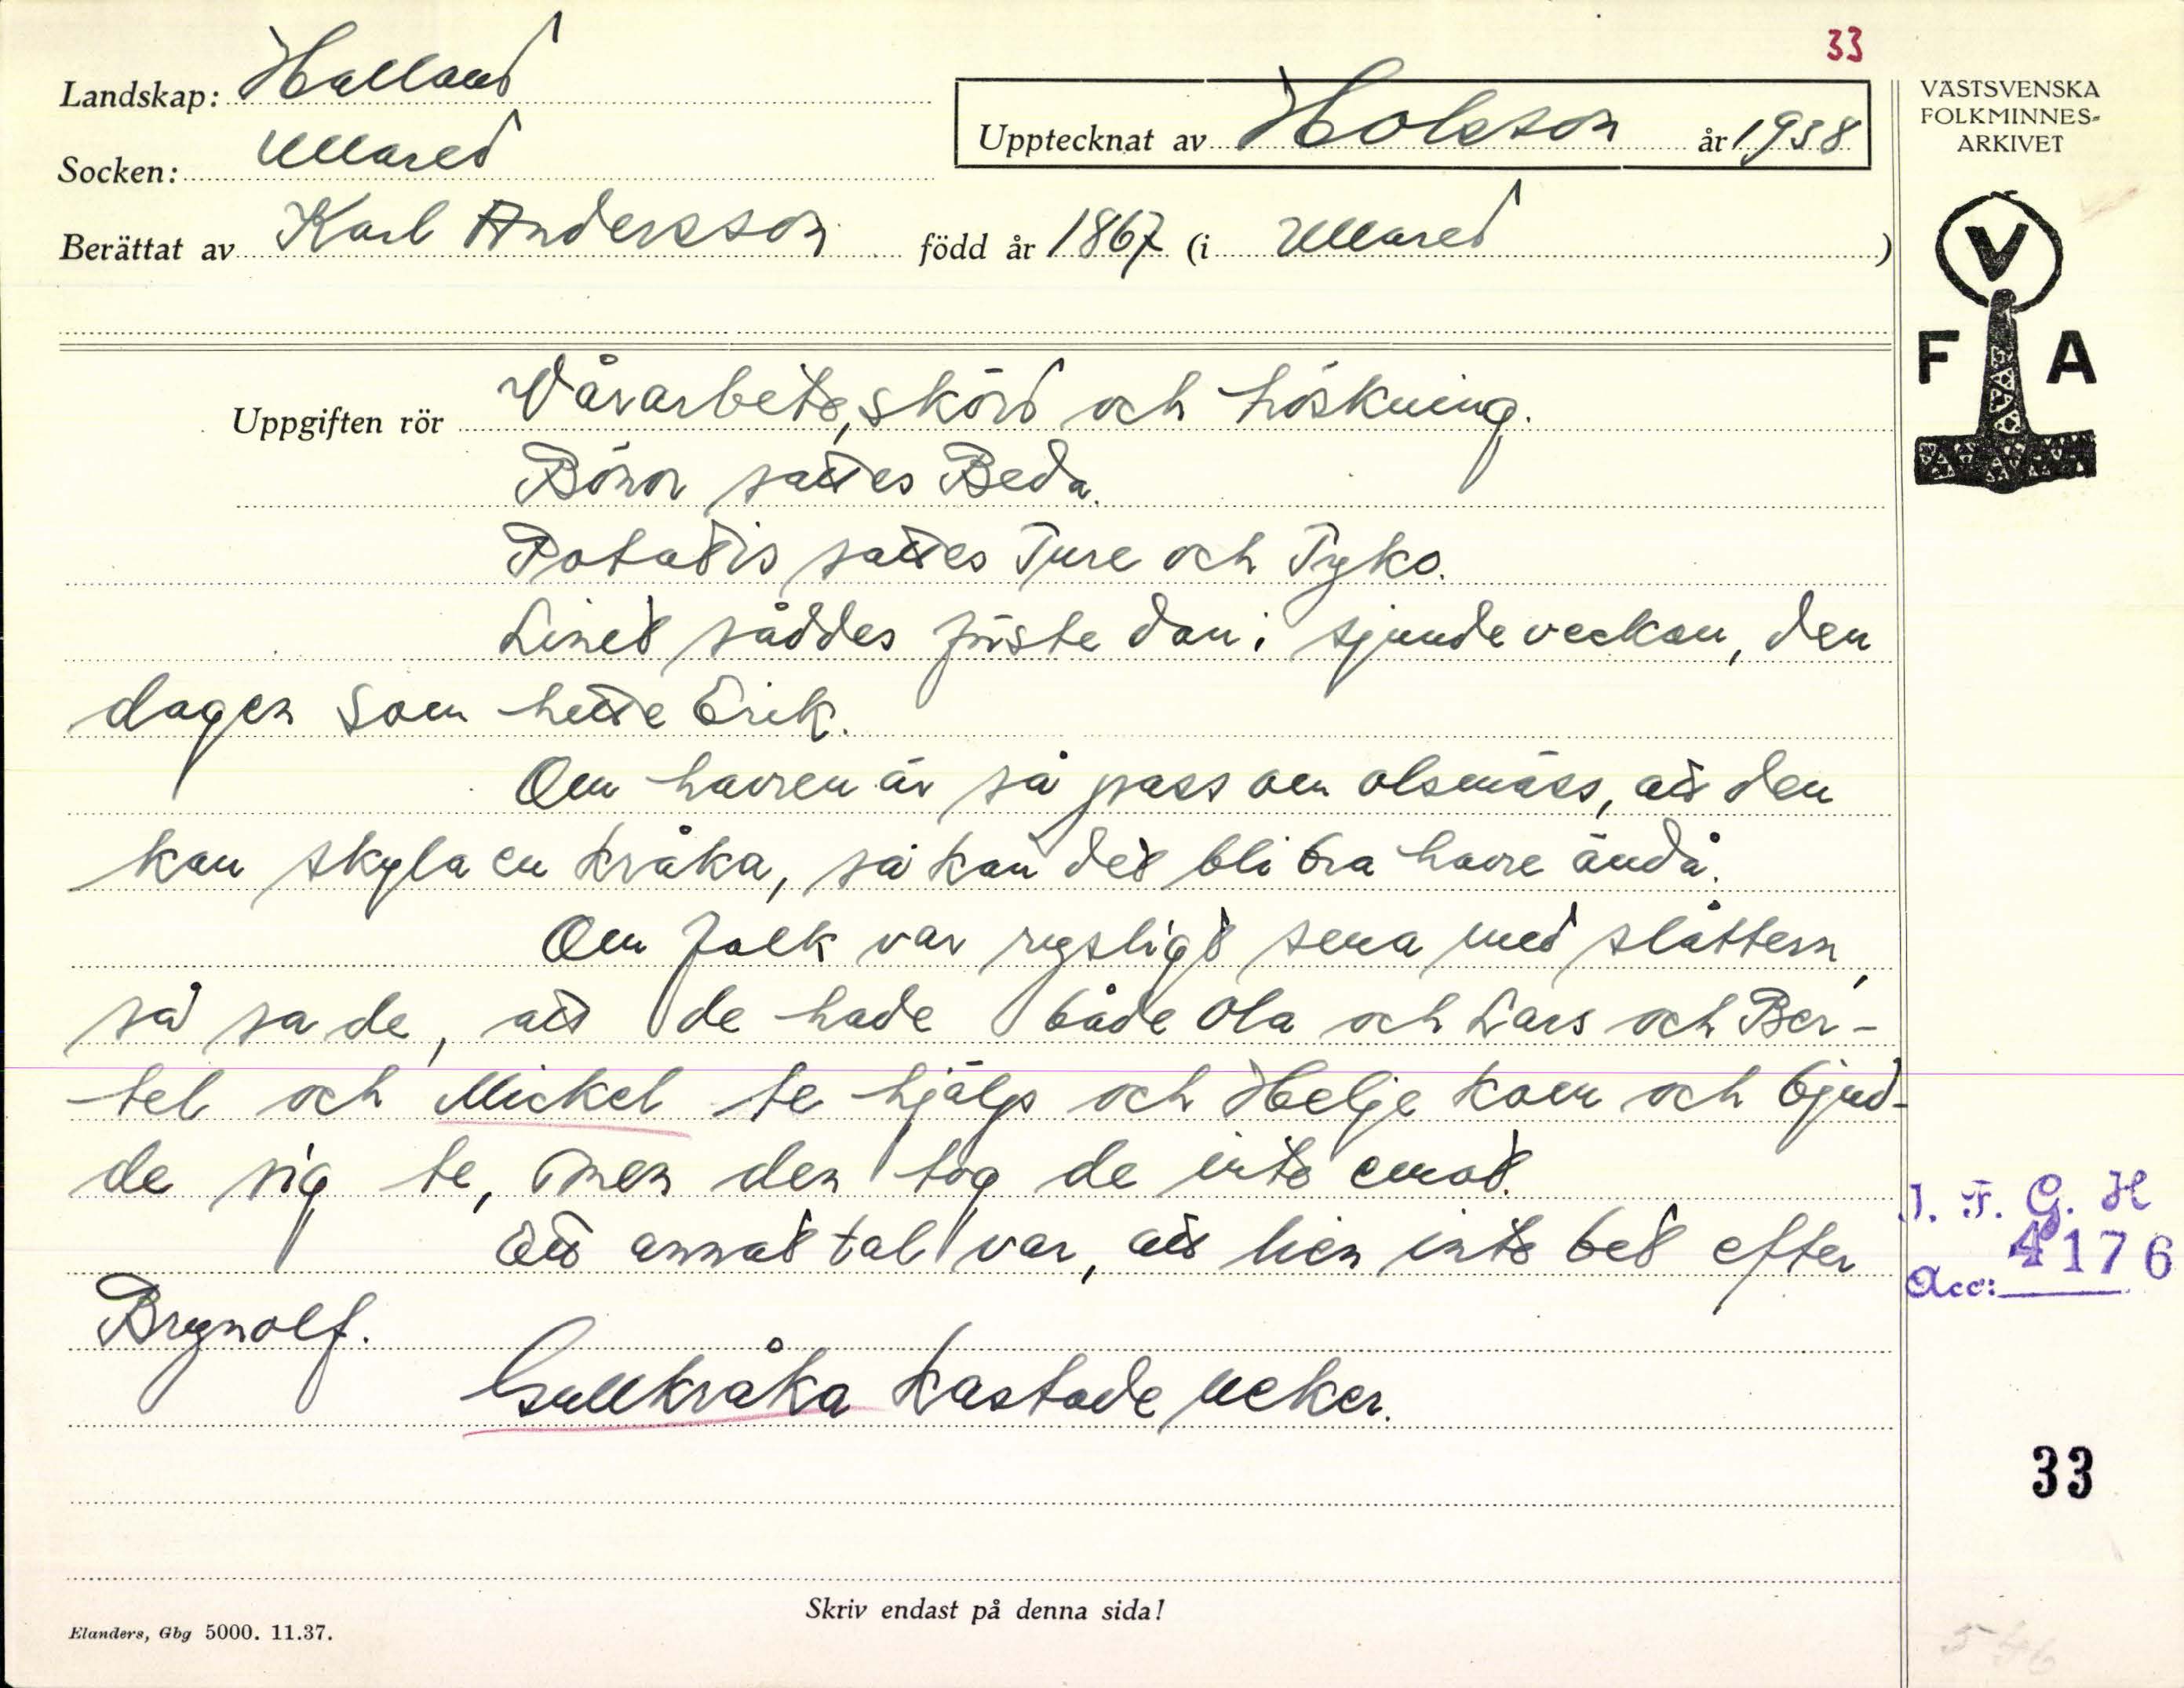 33
Landskap: Halland
Socken: Ullared
Upptecknat av Holsson år 1938
VÄSTSVENSKA
FOLKMINNES-
ARKIVET
Berättat av Karl Andersson född år 1867 (i Ullared)
V
F A
Uppgiften rör Vårarbete, skörd och tröskning.
Bönor sattes Beda.
Potatis sattes Ture och Tyko.
Linet såddesförste dan i sjunde veckan, den
dagen som hette Erik.
Om havren är så pass om olsmäss, att den
kan skyla en kråka, så kan det bli bra havre ändå.
Om folk var rysligt sena med slåttern,
så sa de, att de hade både Ola och Lars och Ber-
tel och Mickel te hjälp och Helje kom och bjud-
de sig te, men den tog de inte emot.
Ett annat tal var, att lien inte bet efter
Brynolf.
Gullkråka kastade neker.
I. F. G. H
Acc: 4176
33
Skriv endast på denna sida!
Elanders, Gbg 5000. 11.37.
546